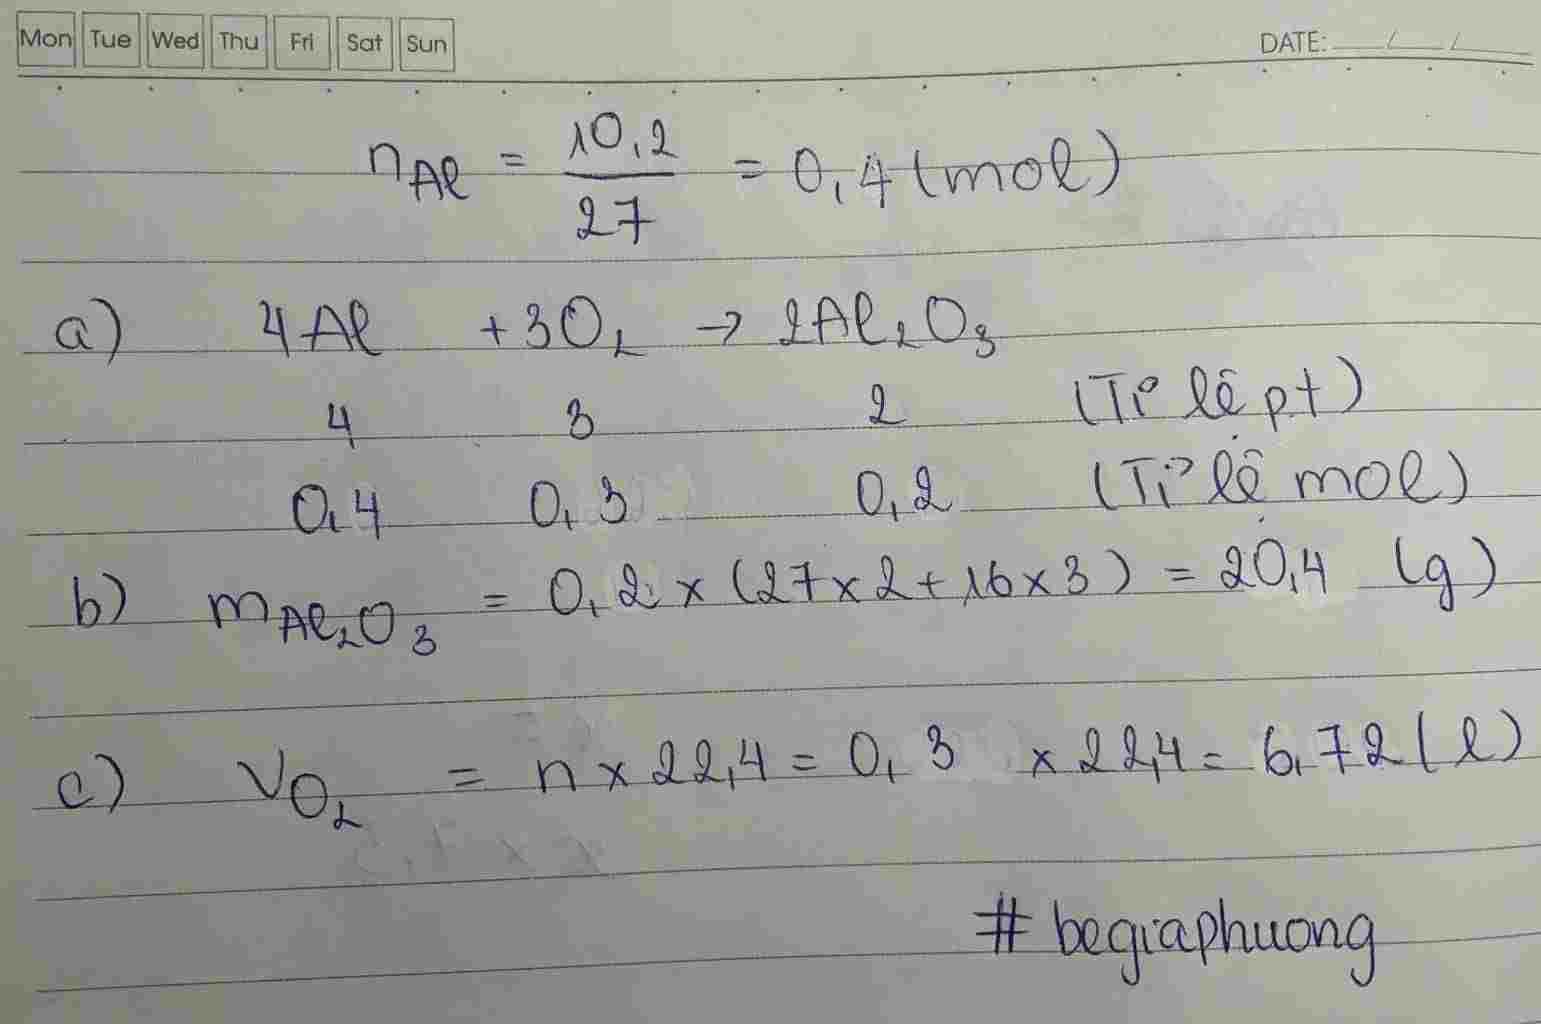 Mon Tue Wed Thu Fri Sat Sun DATE: __/__/__
nAl = 10,2/27 = 0,4 (mol)
a) 4Al + 3O₂ → 2Al₂O₃
4 3 2 (Tỉ lệ pt)
0,4 0,3 0,2 (Tỉ lệ mol)
b) mAl₂O₃ = 0,2 x (27 x 2 + 16 x 3) = 20,4 (g)
c) VO₂ = n x 22,4 = 0,3 x 22,4 = 6,72 (l)
# begiaphuong